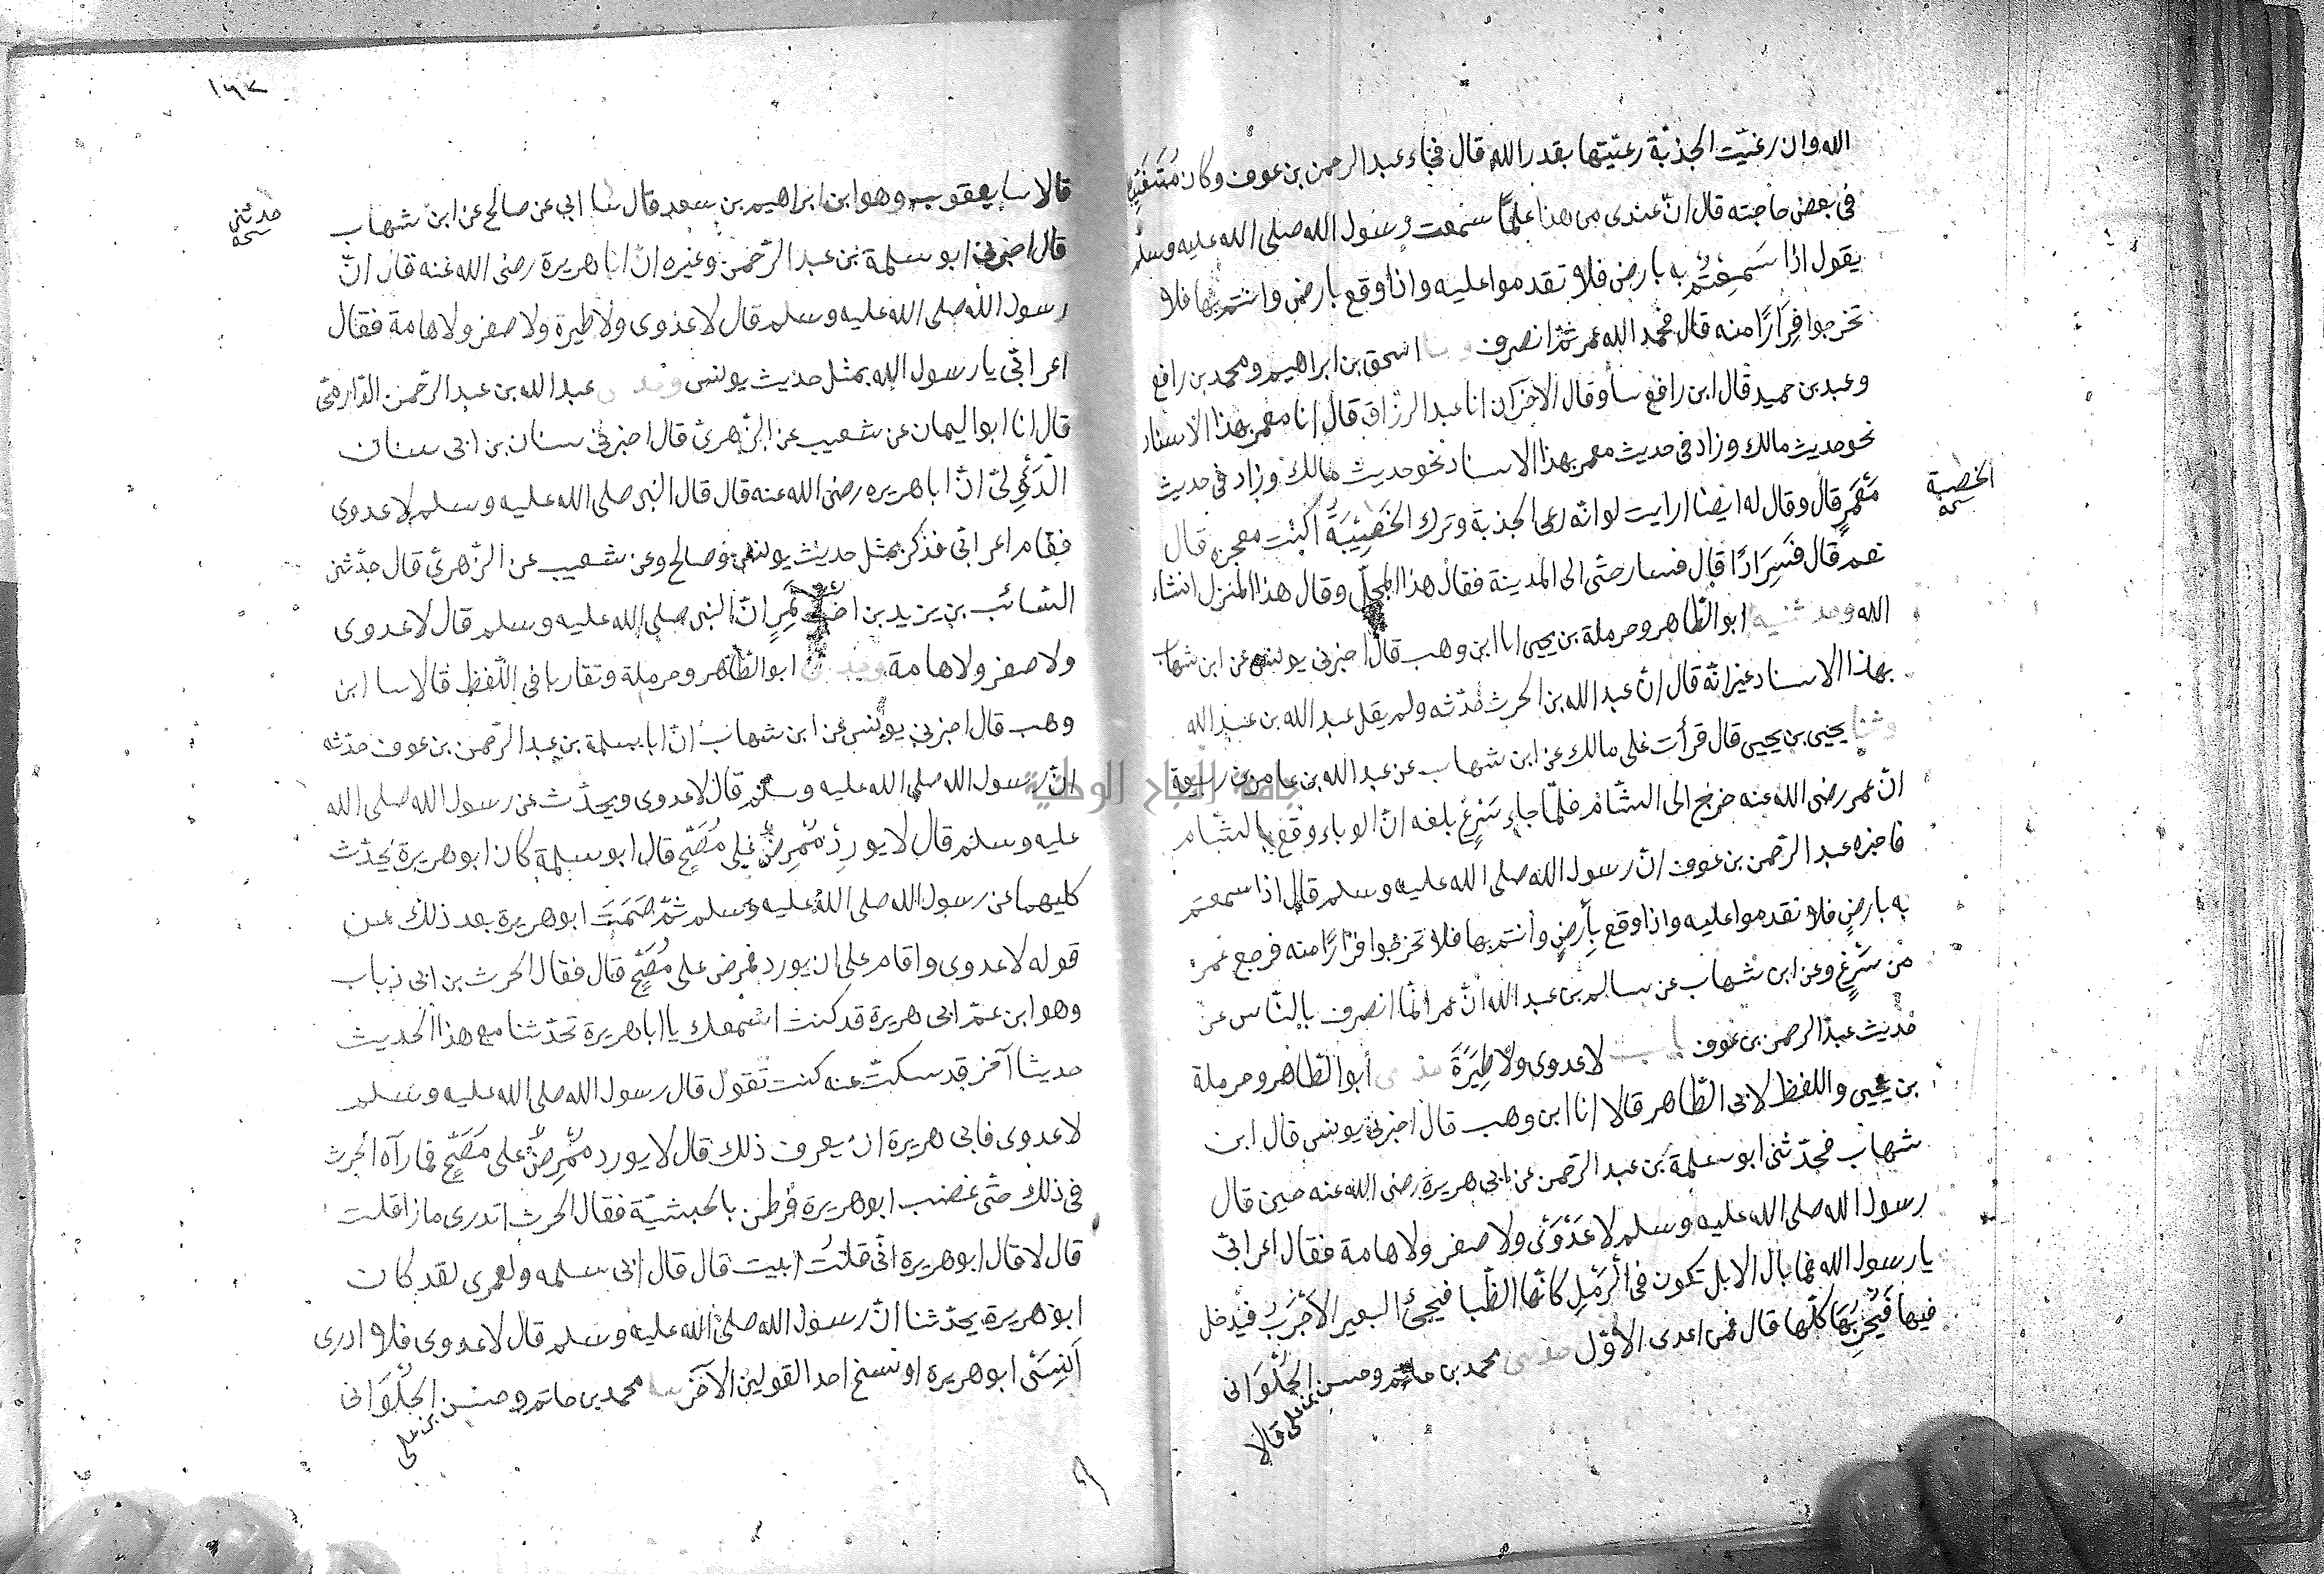 الله وان رعيت الجذبة رعيتها بقدر الله قال فجاء عبد الرحمن بن عوف وكان متغيبا
في بعض حاجته قال انّ عندي من هذا علما سمعت رسول الله صلى الله عليه وسلم
يقول اذا سَمِعْتُم به بارض فلا تقدموا عليه واذا وقع بارض وانتم بها فلا
تخرجوا فِرَارًا منه قال فحمد الله عمر ثمّ انصرف وسا اسحق بن ابراهيم ومحمد بن رافع
وعبد بن حميد قال ابن رافع سا وقال الاخران انا عبد الرزاق قال انا معمر بهذا الاسناد
نحو حديث مالك وزاد في حديث معمر بهذا الاسناد نحو حديث مالك وزاد في حديث
مَعْمَرٍ قال وقال له ايضا ارايت لو انّه رعى الجذبة وترك الخَصِيْبَةَ اكنت معجزه قال
الخصبة
نعم قال فَسِرَ اذًا قال فسار حتّى الى المدينة فقال هذا المحلّ وقال هذا المنزل انشاء
الله وحدثنيه ابو الطّاهر وحرملة بن يحيى انا ابن وهب قال اخبرني يونس عن ابن شهاب
بهذا الاسناد غير انّه قال انّ عبد الله بن الحرث حدّثه ولم يقل عبد الله بن عبد الله
وثنا يحيى بن يحيى قال قرأت على مالك عن ابن شهاب عن عبد الله بن عامر بن ربيعة
انّ عمر رضى الله عنه خرج الى الشّام فلمّا جاء سَرْغَ بلغه انّ الوباء وقع بالشّام
فاخبره عبد الرّحمن بن عوف انّ رسول الله صلى الله عليه وسلم قال اذا سمعتم
به بارضٍ فلا تقدموا عليه واذا وقع بأرضٍ وأنتم بها فلا تخرجوا فرارًا منه فرجع عمر
من سَرْغٍ وعن ابن شهاب عن سالم بن عبد الله انّ عمر انّما انصرف بالنّاس عن
حديث عبد الرحمن بن عوف باب لا عدوى ولا طِيَرَةَ حدثني أبو الطّاهر وحرملة
بن يحيى واللفظ لابى الطّاهر قالا انا ابن وهب قال اخبرني يونس قال ابن
شهاب فحدّثنى ابو سلمة بن عبد الرّحمن عن ابى هريرة رضى الله عنه حين قال
رسول الله صلى الله عليه وسلم لا عَدْوَى ولا صفر ولا هامة فقال اعرابيّ
يا رسول الله فما بال الابل تكون في الرَّمْلِ كانّها الظّبا فيجئُ البعير الاَجْرَبُ فيدخل
فيها فَيُجْرِبُهَا كلّها قال فمن اعدى الاوّل حدثنى محمد بن حاتم وحسن الحُلْوَانى
بن على قالا
١٦٧
قالا سا يعقوب وهو ابن ابراهيم بن سعد قال سا ابى عن صالح عن ابن شهاب
حدثنى
قال اخبرني ابو سلمة بن عبد الرّحمن وغيره انّ ابا هريرة رضى الله عنه قال انّ
رسول الله صلى الله عليه وسلم قال لا عدوى ولا طيرة ولا صفر ولا هامة فقال
اعرابىّ يا رسول الله بمثل حديث يونس وحدثنى عبد الله بن عبد الرّحمن الدّارمىّ
قال انا ابو اليمان عن شعيب عن الزّهرىّ قال اخبرني سنان بن ابى سنان
الدُّؤَلىّ انّ ابا هريره رضى الله عنه قال قال النبى صلى الله عليه وسلم لا عدوى
فقام اعرابىّ فذكر بمثل حديث يونس وصالح وعن شعيب عن الزّهرىّ قال حدّثنى
السّائب بن يزيد بن اخت نَمِرٍ انّ النبى صلى الله عليه وسلم قال لا عدوى
ولا صفر ولا هامة وحدثنى ابو الطّاهر وحرملة وتقاربا في اللّفظ قالا سا ابن
وهب قال اخبرني يونس عن ابن شهاب انّ ابا سلمة بن عبد الرّحمن بن عوف حدّثه
انّ رسول الله صلى الله عليه وسلم قال لا عدوى ويحدّث عن رسول الله صلى الله
عليه وسلم قال لا يورِدُ مُمْرِضٌ على مُصِحٍّ قال ابو سلمة كان ابو هريرة يحدّث
كليهما عن رسول الله صلى الله عليه وسلم ثمّ صَمَتَ ابو هريرة بعد ذلك عن
قوله لا عدوى واقام على ان يورد ممرض على مُصِحٍّ قال فقال الحرث بن ابى ذباب
وهو ابن عمّ ابى هريرة قد كنت اسمعك يا ابا هريرة تحدّثنا مع هذا الحديث
حديثا آخر قد سكتّ عنه كنت تقول قال رسول الله صلى الله عليه وسلم
لا عدوى فابى هريرة ان يعرف ذلك قال لا يورد مُمْرِضٌ على مُصِحٍّ فما رآه الحرث
في ذلك حتّى غضب ابو هريرة فرطن بالحبشيّة فقال الحرث اتدرى ماذا قلت
قال لا قال ابو هريرة انّى قلتُ ابيت قال قال ابى سلمه ولعمرى لقد كان
ابو هريرة يحدّثنا انّ رسول الله صلى الله عليه وسلم قال لا عدوى فلا ادرى
اَنَسِىَ ابو هريرة او نسخ احد القولين الآخر سا محمد بن حاتم وحسن الحُلْوَانى
بن على
جامعة النجاح الوطنية